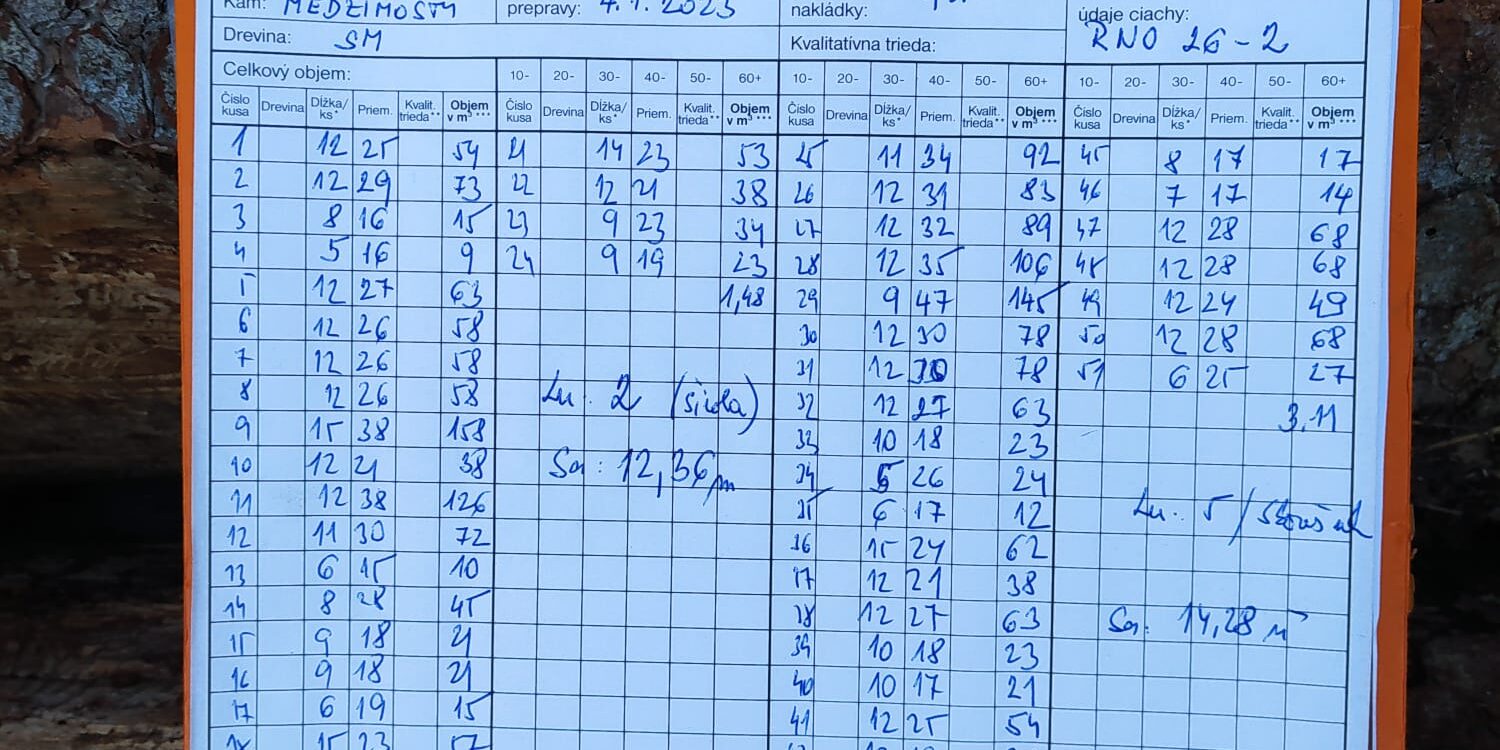 Kam: MEDZIMOSTY prepravy: 4.1.2023 nakládky: údaje ciachy:
Drevina: SM Kvalitatívna trieda: RNO 26-2
Celkový objem: 10- 20- 30- 40- 50- 60+ 10- 20- 30- 40- 50- 60+ 10- 20- 30- 40- 50- 60+
Číslo kusa Drevina Dĺžka/ks* Priem. Kvalit. trieda** Objem v m³*** Číslo kusa Drevina Dĺžka/ks* Priem. Kvalit. trieda** Objem v m³*** Číslo kusa Drevina Dĺžka/ks* Priem. Kvalit. trieda** Objem v m³*** Číslo kusa Drevina Dĺžka/ks* Priem. Kvalit. trieda** Objem v m³***
1 12 25 54 21 14 23 53 25 11 34 92 45 8 17 17
2 12 29 73 22 12 21 38 26 12 31 83 46 7 17 14
3 8 16 15 23 9 23 34 27 12 32 89 47 12 28 68
4 5 16 9 24 9 19 23 28 12 35 106 48 12 28 68
5 12 27 63 1,48 29 9 47 145 49 12 24 49
6 12 26 58 30 12 30 78 50 12 28 68
7 12 26 58 31 12 30 78 51 6 25 27
8 12 26 58 2 32 12 27 63 3,11
9 15 38 158 33 10 18 23
10 12 21 38 12,36 34 5 26 24
11 12 38 126 35 6 17 12 5
12 11 30 72 36 15 24 62
13 6 15 10 37 12 21 38
14 8 28 45 38 12 27 63 14,28
15 9 18 21 39 10 18 23
16 9 18 21 40 10 17 21
17 6 19 15 41 12 25 54
15 23 57